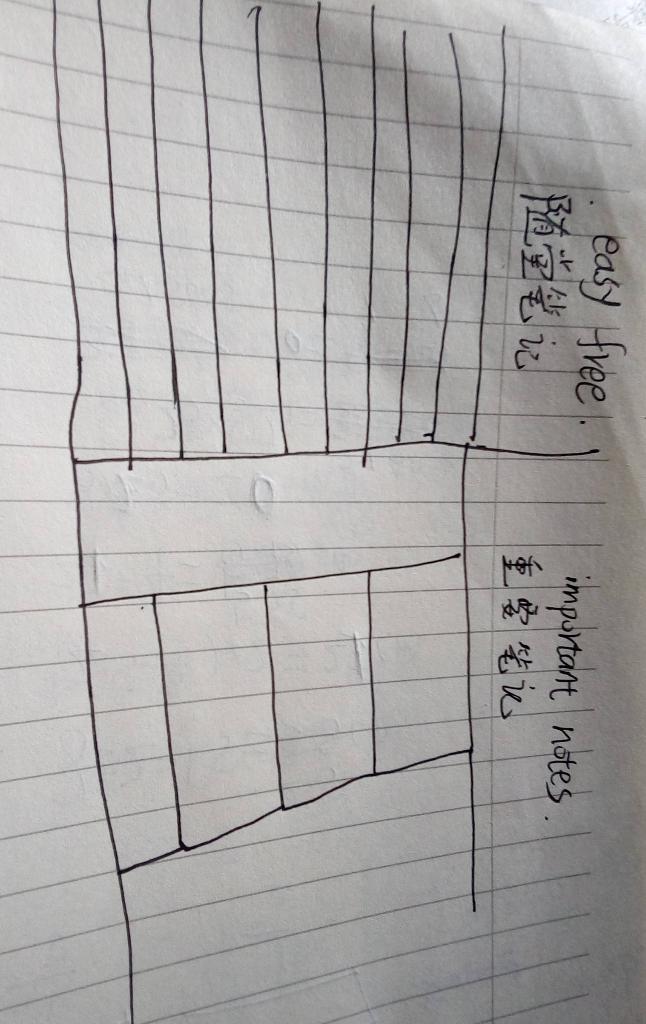 . easy free.
随堂笔记
important notes.
重要笔记